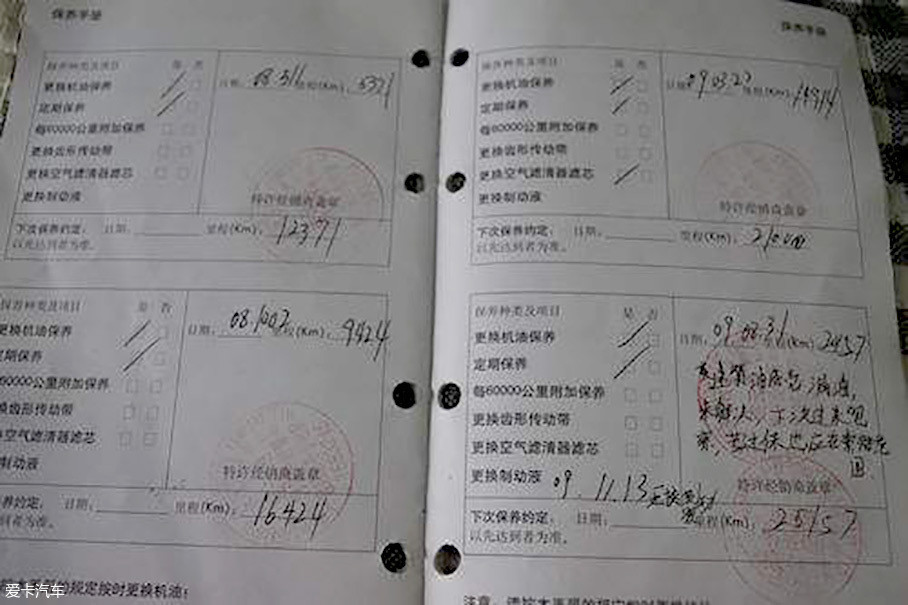 保养手册
保养种类及项目 是 否
更换机油保养
定期保养
每60000公里附加保养
更换齿形传动带
更换空气滤清器滤芯
更换制动液
日期: 08.3.16 里程(Km): 5371
特许经销商盖章
下次保养约定, 日期: 里程(Km): 12371
以先达到者为准。
保养种类及项目 是 否
更换机油保养
定期保养
60000公里附加保养
换齿形传动带
换空气滤清器滤芯
制动液
日期: 08.1007 里程(Km): 9424
特许经销商盖章
养约定, 日期: 里程(Km): 16424
达到者为准。
的规定按时更换机油!
保养手册
保养种类及项目 是 否
更换机油保养
定期保养
每60000公里附加保养
更换齿形传动带
更换空气滤清器滤芯
更换制动液
日期: 09.03.27 里程(Km):
特许经销商盖章
下次保养约定, 日期: 里程(Km): 21000
以先达到者为准。
保养种类及项目 是 否
更换机油保养
定期保养
每60000公里附加保养
更换齿形传动带
更换空气滤清器滤芯
更换制动液 09.11.13
日期: 09.08.31 里程(Km):
特许经销商盖章
下次保养约定, 日期: 里程(Km): 25157
以先达到者为准。
爱卡汽车